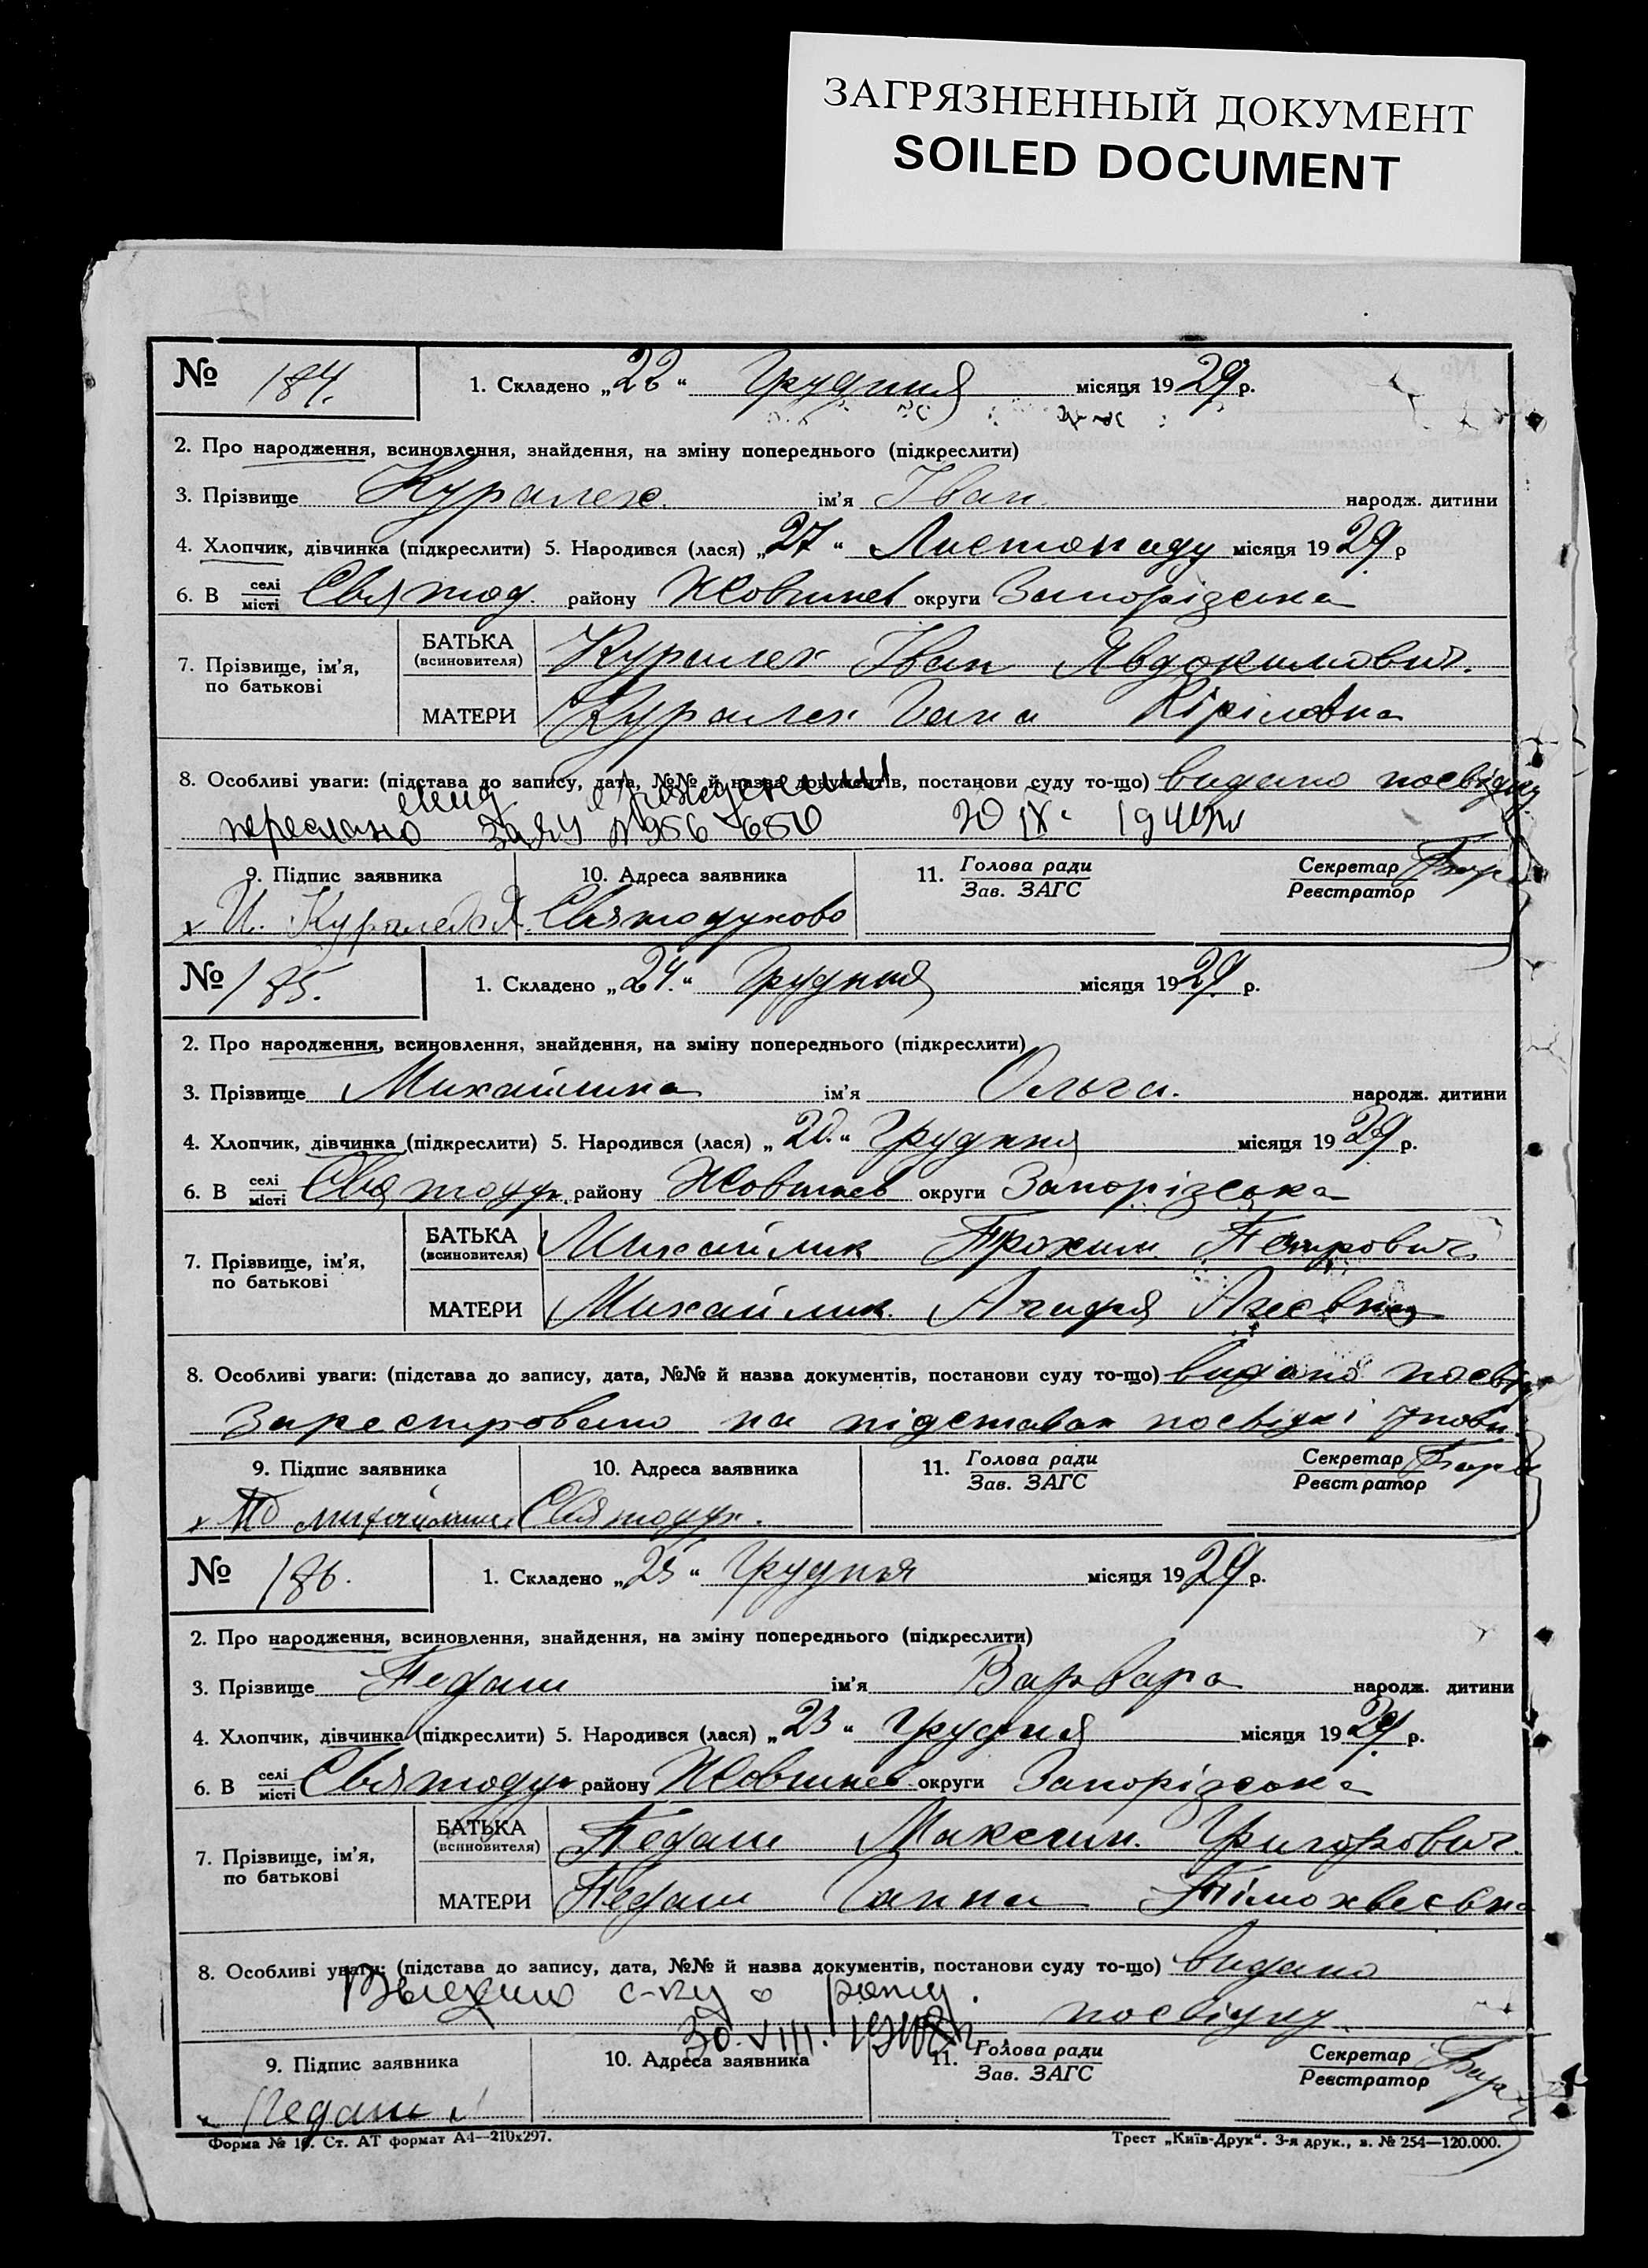 ЗАГРЯЗНЕННЫЙ ДОКУМЕНТ
SOILED DOCUMENT
№ 184. 1. Складено „22“ Грудня місяця 1929 р.
2. Про народження, всиновлення, знайдення, на зміну попереднього (підкреслити)
3. Прізвище Куралех. ім'я Іван. народж. дитини
4. Хлопчик, дівчинка (підкреслити) 5. Народився (лася) „27“ Листопаду місяця 1929 р
6. В селі місті Святод. району Жовтнев округи Запорізька
7. Прізвище, ім'я, по батькові БАТЬКА (всиновителя) Куралех Іван Явдокимович.
МАТЕРИ Куралех Гана Кіріловна
8. Особливі уваги: (підстава до запису, дата, №№ й назва документів, постанови суду то-що) видано посвідку
о рождении
переслано 20 IX
9. Підпис заявника 10. Адреса заявника 11. Голова ради Зав. ЗАГС Секретар Реєстратор
И. Святодухово
№ 185. 1. Складено „24.“ Грудня місяця 1929 р.
2. Про народження, всиновлення, знайдення, на зміну попереднього (підкреслити)
3. Прізвище Михайлика ім'я Ольга. народж. дитини
4. Хлопчик, дівчинка (підкреслити) 5. Народився (лася) „20.“ Грудння місяця 1929 р.
6. В селі місті Святодух. району Жовтнев округи Запорізська
7. Прізвище, ім'я, по батькові БАТЬКА (всиновителя) Михайлик Трохим Петрович
МАТЕРИ Михайлик. Агафія
8. Особливі уваги: (підстава до запису, дата, №№ й назва документів, постанови суду то-що) видано посвід
Зареєстровано на підставах посвідкі
9. Підпис заявника 10. Адреса заявника 11. Голова ради Зав. ЗАГС Секретар Реєстратор
Святодух.
№ 186. 1. Складено „25“ Грудня місяця 1929 р.
2. Про народження, всиновлення, знайдення, на зміну попереднього (підкреслити)
3. Прізвище Педаш ім'я Варвара народж. дитини
4. Хлопчик, дівчинка (підкреслити) 5. Народився (лася) „23“ Грудня місяця 1929 р.
6. В селі місті Святодух району Жовтнев округи Запорізська
7. Прізвище, ім'я, по батькові БАТЬКА (всиновителя) Педаш Максим. Григорович.
МАТЕРИ Педаш Ганна Тімохвеєвна
8. Особливі уваги: (підстава до запису, дата, №№ й назва документів, постанови суду то-що) видано
с-ву о рожд. посвідку
30.VIII.
9. Підпис заявника 10. Адреса заявника 11. Голова ради Зав. ЗАГС Секретар Реєстратор
Педаш
Форма № 10. Ст. АТ формат А4—210х297. Трест „Київ-Друк“. 3-я друк., з. № 254—120.000.